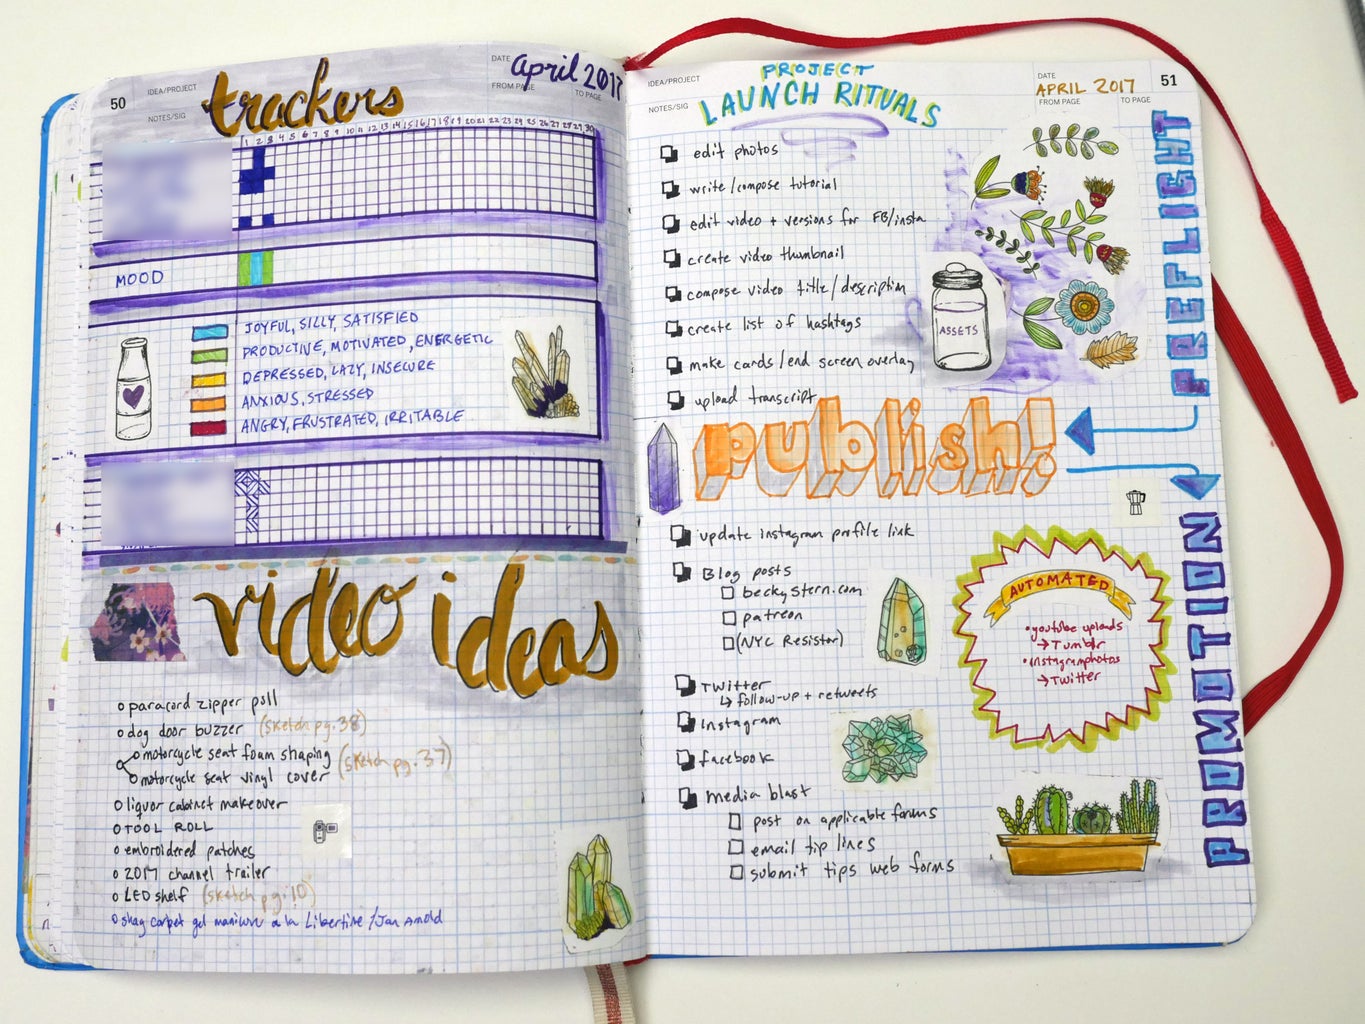 50
IDEA/PROJECT
NOTES/SIG
trackers
DATE
april 2017
FROM PAGE
TO PAGE
1 2 3 4 5 6 7 8 9 10 11 12 13 14 15 16 17 18 19 20 21 22 23 24 25 26 27 28 29 30
MOOD
JOYFUL, SILLY, SATISFIED
PRODUCTIVE, MOTIVATED, ENERGETIC
DEPRESSED, LAZY, INSECURE
ANXIOUS, STRESSED
ANGRY, FRUSTRATED, IRRITABLE
video ideas
paracord zipper pull
dog door buzzer (sketch pg. 38)
motorcycle seat foam shaping
motorcycle seat vinyl cover (sketch pg. 37)
liquor cabinet makeover
TOOL ROLL
embroidered patches
2017 channel trailer
LED shelf (sketch pg. 10)
shag carpet gel manicure a la Libertine/Jan Arnold
IDEA/PROJECT
NOTES/SIG
PROJECT
LAUNCH RITUALS
DATE
APRIL 2017
FROM PAGE
TO PAGE
51
edit photos
write/compose tutorial
edit video + versions for FB/insta
create video thumbnail
compose video title/description
create list of hashtags
make cards/end screen overlay
upload transcript
ASSETS
PREFLIGHT
publish!
update instagram profile link
Blog posts
beckystern.com
patreon
(NYC Resistor)
Twitter
↳ follow-up + retweets
Instagram
facebook
Media blast
post on applicable forms
email tip lines
submit tips web forms
AUTOMATED
• youtube uploads
→ Tumblr
• instagram photos
→ Twitter
PROMOTION